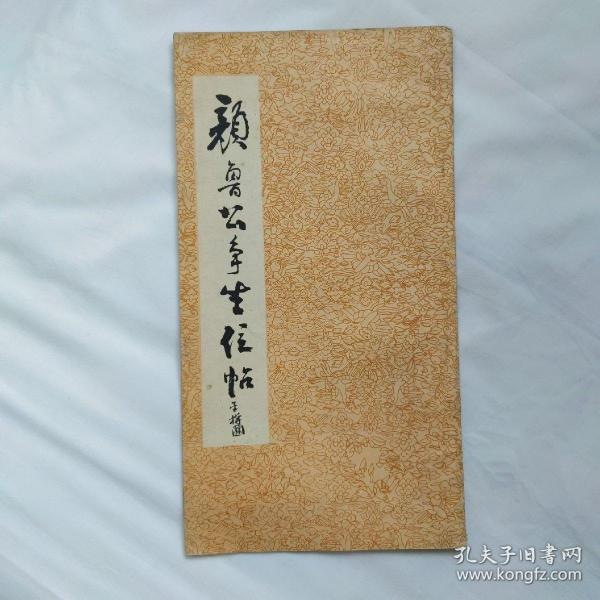 顏魯公争坐位帖
孔夫子旧書网
www.kongfz.com